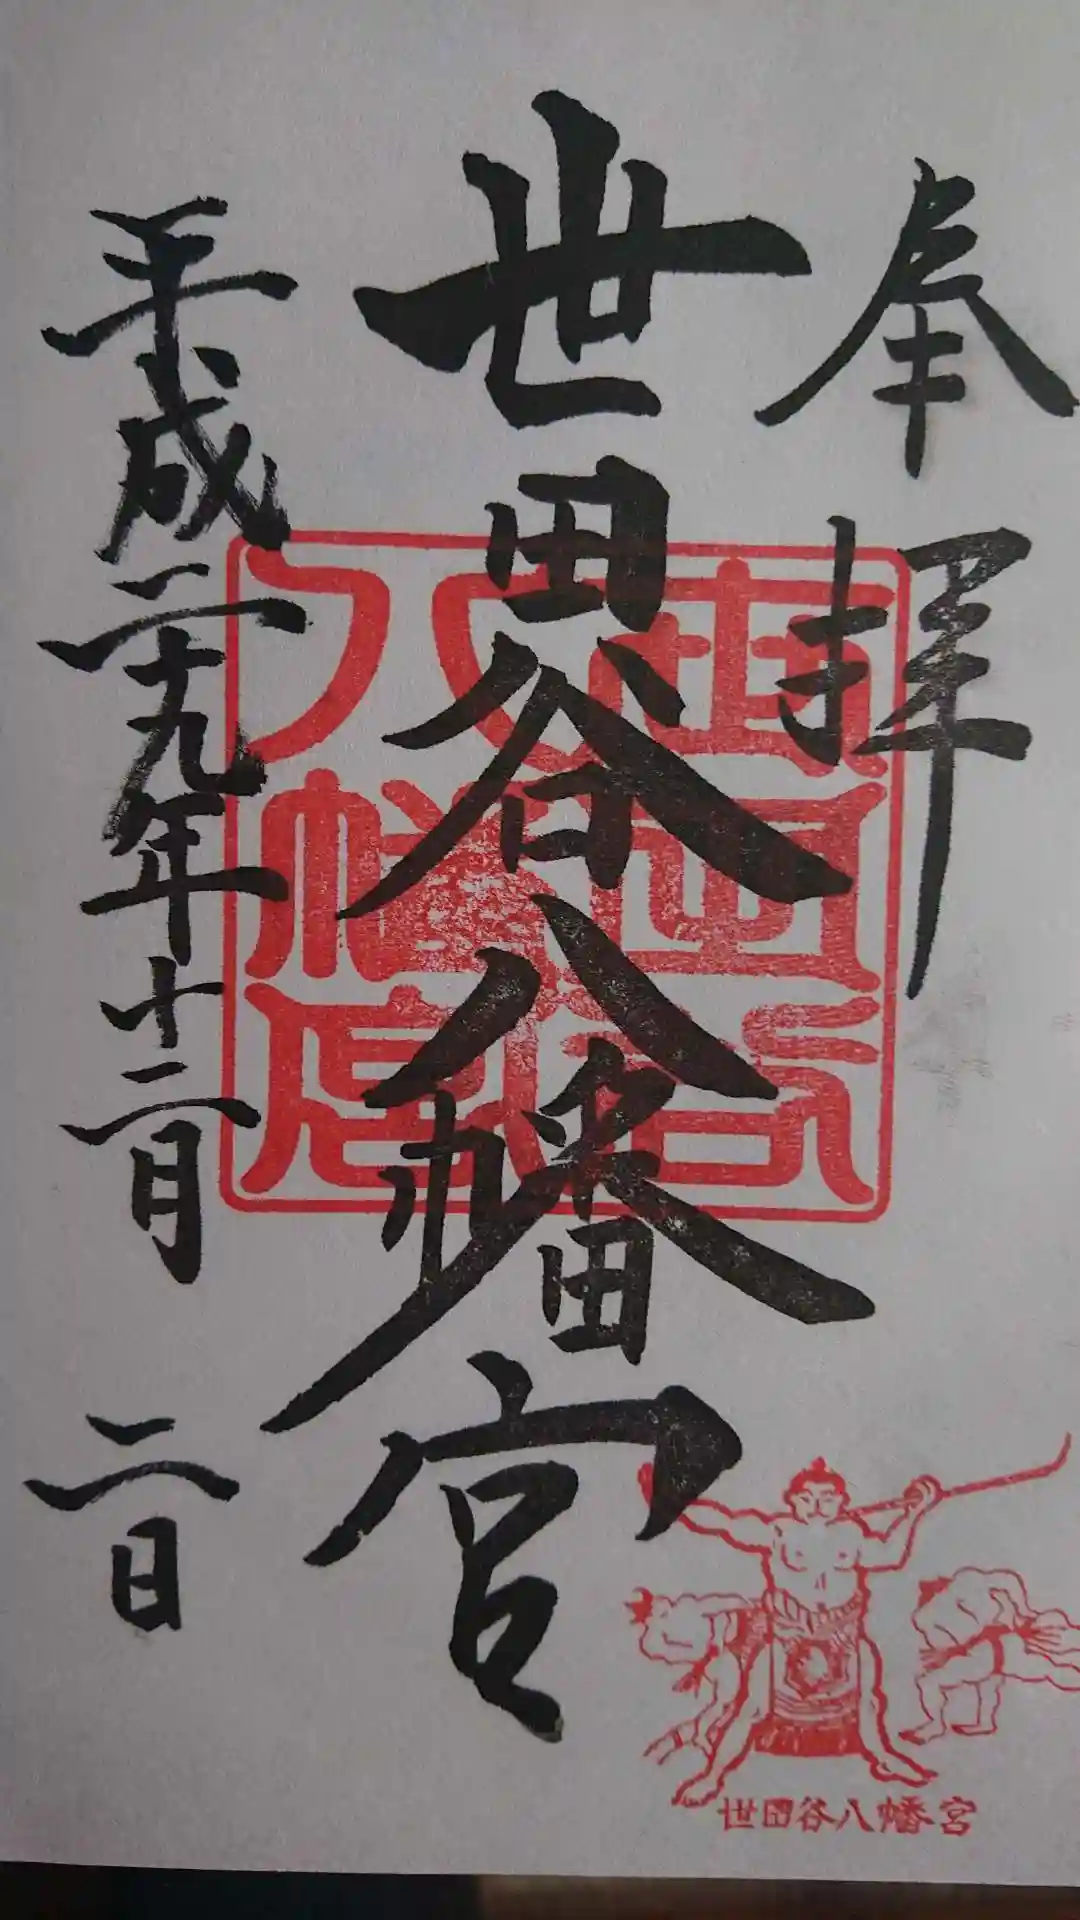 奉拝
世田谷八幡宮
平成二十九年十二月二日
世田谷八幡宮
世田谷八幡宮